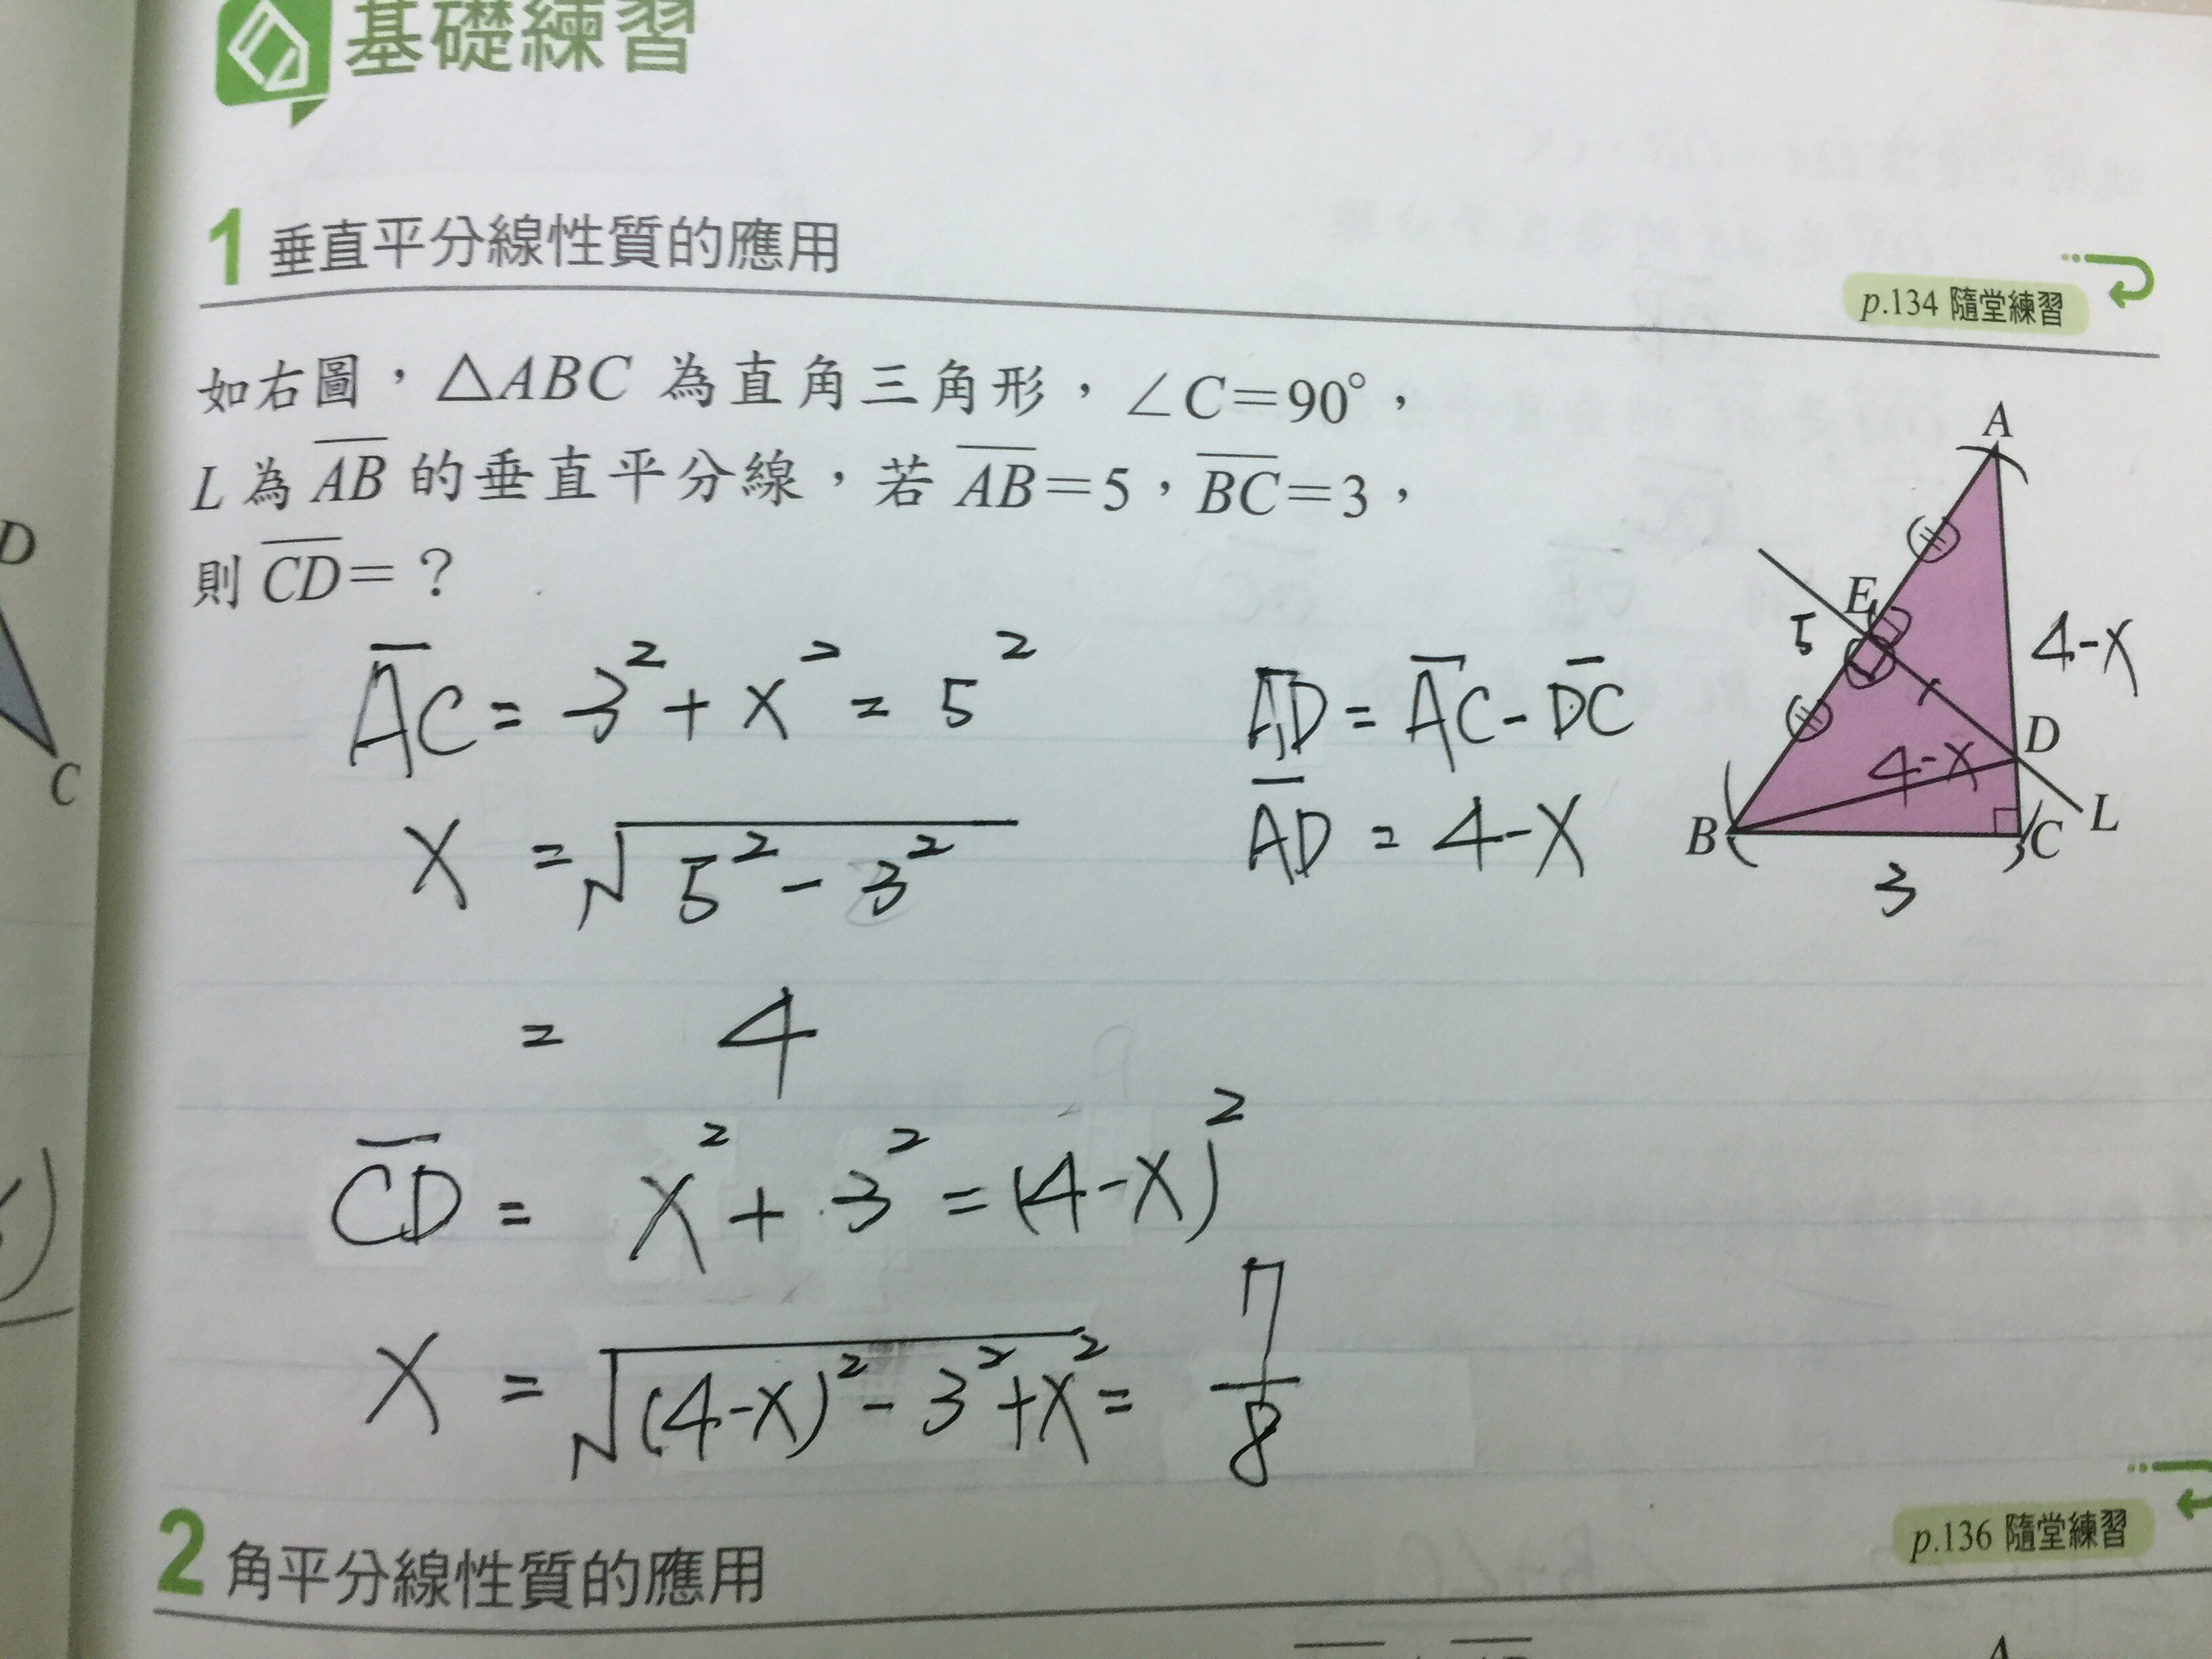 基礎練習
1 垂直平分線性質的應用
p.134 隨堂練習
如右圖，△ABC 為直角三角形，∠C=90°，
L 為 AB 的垂直平分線，若 AB=5，BC=3，
則 CD=？
AC = 3² + x² = 5²
x = √(5² - 3²)
= 4
AD = AC - DC
AD = 4-x
CD = x² + 3² = (4-x)²
x = √((4-x)² - 3² + x²) = 7/8
A
E
5
4-x
D
4-x
B
C
L
3
2 角平分線性質的應用
p.136 隨堂練習
A
D
C